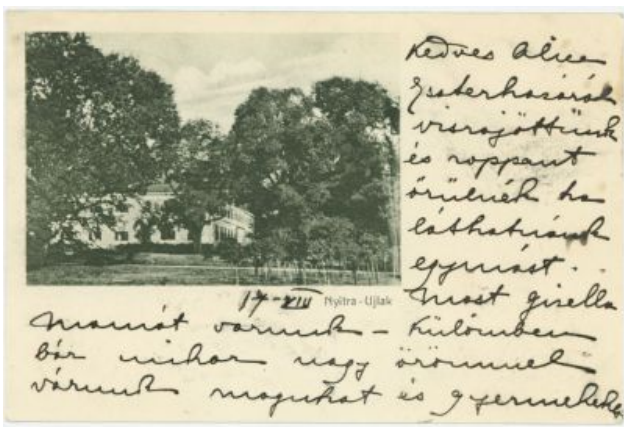 Kedves Alice
Eszterházáról
visszajöttünk
és roppant
örülnék ha
láthatnánk
egymást.
17-VIII Nyitra-Ujlak
Most gisella
mamát varunk – külömben
bár mikor nagy örömmel
várunk magukat és gyermekeke